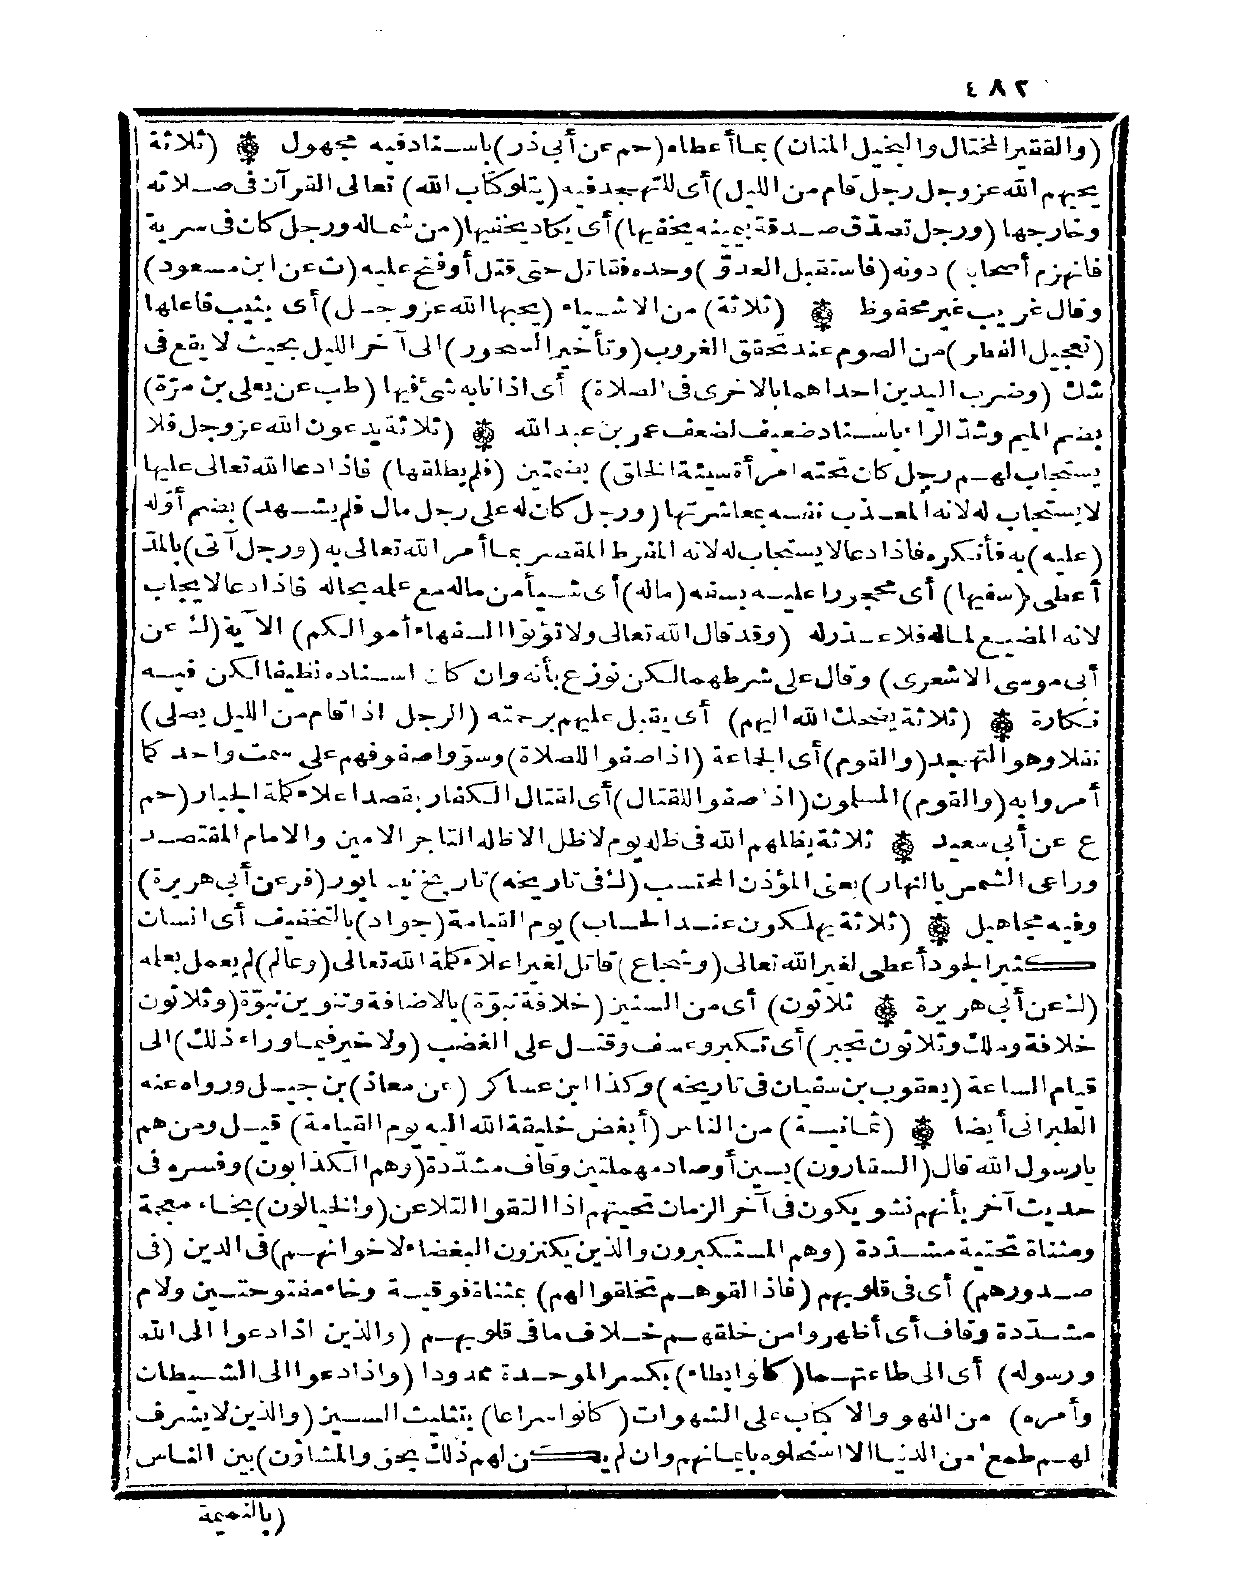 ٤٨٢
(والفقير المختال والبخيل المنان) بما أعطاه (حم عن أبي ذر) باسناد فيه مجهول ۞ (ثلاثة
يحبهم الله عز وجل رجل قام من الليل) أى للتهجد فيه (يتلو كتاب الله) تعالى القرآن فى صلاته
وخارجها (ورجل تصدّق صدقة بيمينه يخفيها) أى يكاد يخفيها (من شماله ورجل كان فى سرية
فانهزم أصحابه) دونه (فاستقبل العدوّ) وحده فقاتل حتى قتل أو فتح عليه (ت عن ابن مسعود)
وقال غريب غير محفوظ ۞ (ثلاثة) من الاشياء (يحبها الله عز وجل) أى يثيب فاعلها
(تعجيل الفطر) من الصوم عند تحقق الغروب (وتأخير السحور) الى آخر الليل بحيث لا يقع فى
شك (وضرب اليدين احداهما بالاخرى فى الصلاة) أى اذا نابه شئ فيها (طب عن يعلى بن مرّة)
بضم الميم وشدّ الراء باسناد ضعيف لضعف عمر بن عبد الله ۞ (ثلاثة يدعون الله عز وجل فلا
يستجاب لهم رجل كان تحته امرأة سيئة الخلق) بضمتين (فلم يطلقها) فاذا دعا الله تعالى عليها
لا يستجاب له لانه المعذب نفسه بمعاشرتها (ورجل كان له على رجل مال فلم يشهد) بضم أوّله
(عليه) به فأنكره فاذا دعا لا يستجاب له لانه المفرط المقصر بما أمر الله تعالى به (ورجل آتى) بالمدّ
أعطى (سفيها) أى محجورا عليه بسفه (ماله) أى شيأ من ماله مع علمه بحاله فاذا دعا لا يجاب
لانه المضيع لماله فلا عذر له (وقد قال الله تعالى ولا تؤتوا السفهاء أموالكم) الآية (ك عن
أبى موسى الاشعرى) وقال على شرطهما لكن نوزع بأنه وان كان اسناده نظيفا لكن فيه
نكارة ۞ (ثلاثة يضحك الله اليهم) أى يقبل عليهم برحمته (الرجل اذا قام من الليل يصلى)
نفلا وهو التهجد (والقوم) أى الجماعة (اذا صفوا للصلاة) وسوّوا صفوفهم على سمت واحد كما
أمروا به (والقوم) المسلمون (اذا صفوا للقتال) أى لقتال الكفار بقصد اعلاء كلمة الجبار (حم
ع عن أبى سعيد ۞ ثلاثة يظلهم الله فى ظله يوم لا ظل الا ظله التاجر الامين والامام المقتصد
وراعى الشمس بالنهار) يعنى المؤذن المحتسب (ك فى تاريخه) تاريخ نيسابور (فر عن أبى هريرة)
وفيه مجاهيل ۞ (ثلاثة يهلكون عند الحساب) يوم القيامة (جواد) بالتخفيف أى انسان
كثير الجود أعطى لغير الله تعالى (وشجاع) قاتل لغير اعلاء كلمة الله تعالى (وعالم) لم يعمل بعلمه
(ك عن أبى هريرة ۞ ثلاثون) أى من السنين (خلافة نبوّة) بالاضافة وتنوين نبوّة (وثلاثون
خلافة وملك وثلاثون تجبر) أى تكبر وعسف وقتل على الغضب (ولا خير فيما وراء ذلك) الى
قيام الساعة (يعقوب بن سفيان فى تاريخه) وكذا ابن عساكر (عن معاذ) بن جبل ورواه عنه
الطبرانى أيضا ۞ (ثمانية) من الناس (أبغض خليقة الله اليه يوم القيامة) قيل ومن هم
يا رسول الله قال (السقارون) بسين أو صاد مهملتين وقاف مشدّدة (وهم الكذابون) وفسره فى
حديث آخر بأنهم نشو يكون فى آخر الزمان تحيتهم اذا التقوا التلاعن (والخيالون) بخاء معجمة
ومثناة تحتية مشددة (وهم المستكبرون والذين يكنزون البغضاء لاخوانهم) فى الدين (فى
صدورهم) أى فى قلوبهم (فاذا لقوهم تخلقوا لهم) بمثناة فوقية وخاء مفتوحتين ولام
مشدّدة وقاف أى أظهروا من خلقهم خلاف ما فى قلوبهم (والذين اذا دعوا الى الله
ورسوله) أى الى طاعتهما (كانوا بطاء) بكسر الموحدة ممدودا (واذا دعوا الى الشيطان
وأمره) من اللهو والاكباب على الشهوات (كانوا سراعا) بتثليث السين (والذين لا يشرف
لهم طمع من الدنيا الا استحلوه بأيمانهم وان لم يكن لهم ذلك بحق والمشاؤن) بين الناس
(بالنميمة